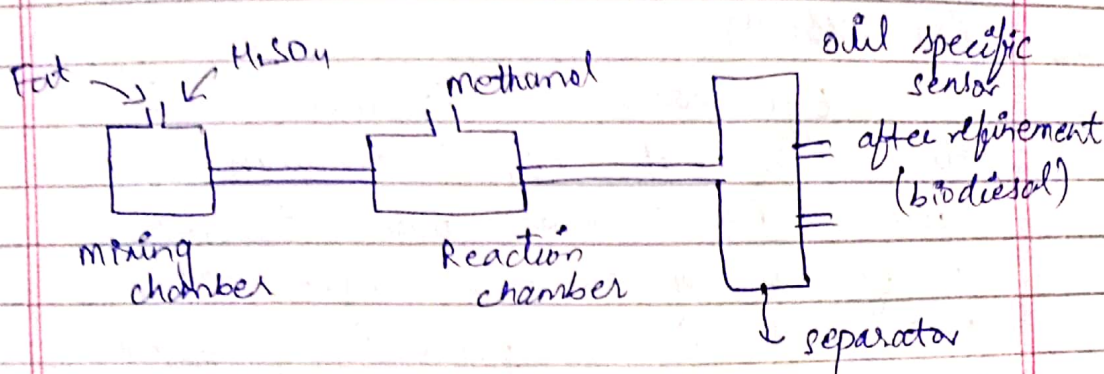 Fat
H2SO4
methanol
oil specific
sensor
after refinement
(biodiesal)
mixing
chamber
Reaction
chamber
separator